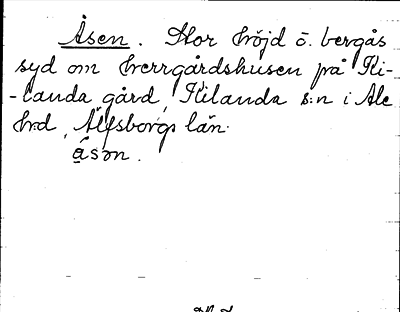 Åsen. Stor höjd o. bergås
syd om herrgårdshusen på Ki-
-landa gård, Kilanda s:n i Ale
hd, Älfsborgs län.
åsən.